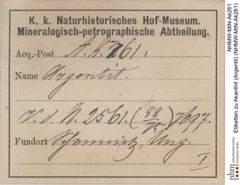 K. k. Naturhistorisches Hof-Museum.
Mineralogisch-petrographische Abtheilung.
Acq.-Post A.k.261.
Name Argentit.
V. d. N. 2561.
Fundort Schemnitz, Ung.
I
NHMW-MIN-Ak261
Etiketten zu Akanthit (Argentit) (NHMW-MIN-Ak261)